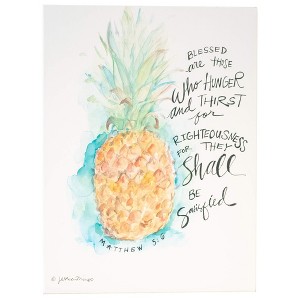 BLESSED
are THOSE
Who HUNGER
and THIRST
for
RIGHTEOUSNESS
FOR THEY
Shall
BE
Satisfied
MATTHEW 5:6